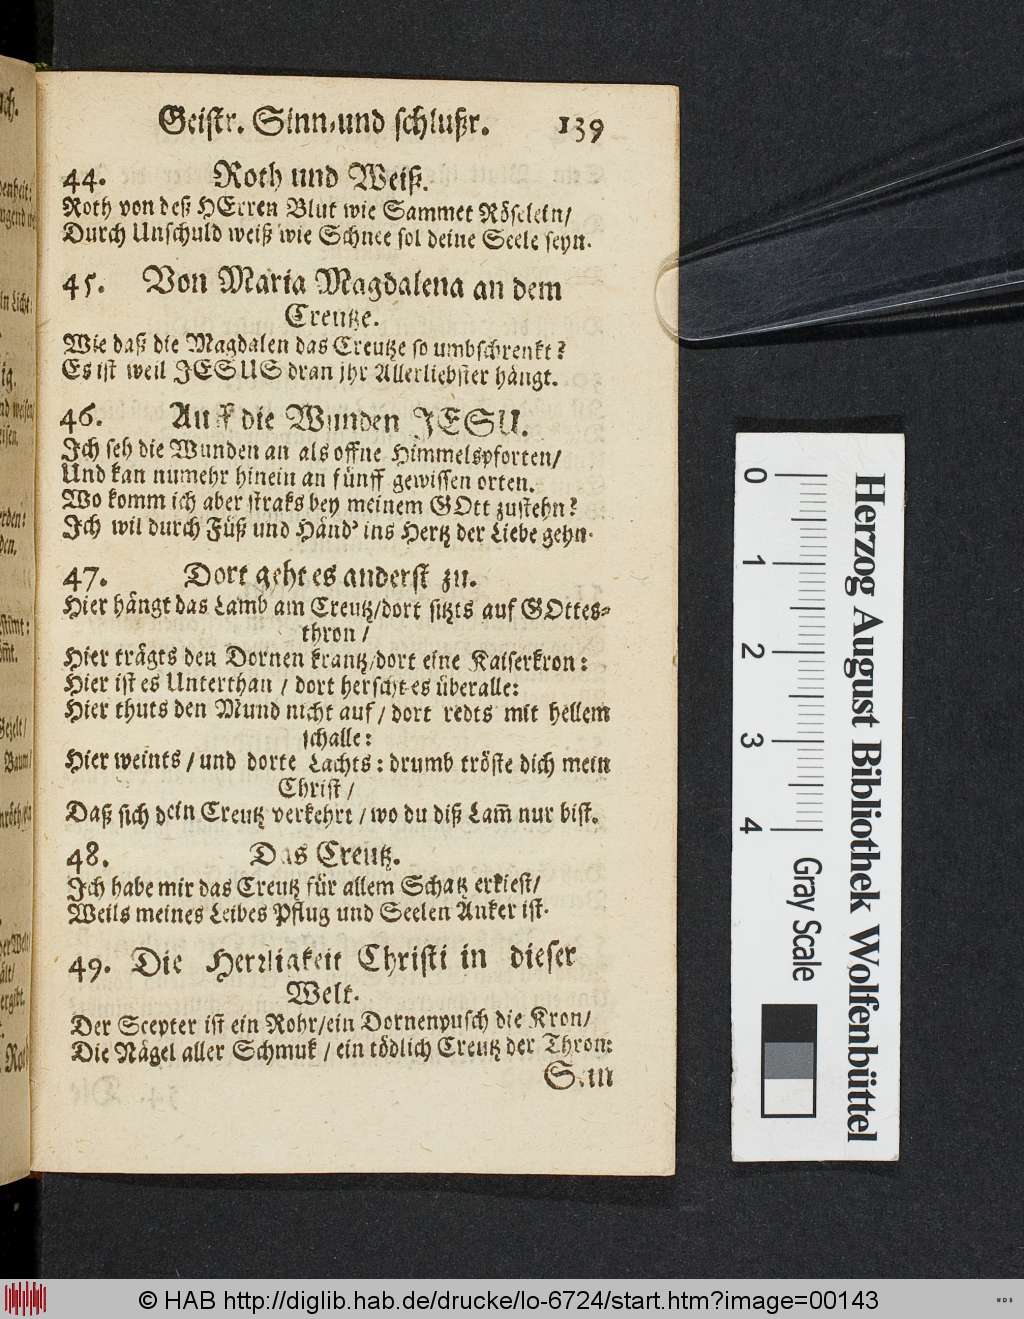 Geistr. Sinn-und schlußr. 139
44. Roth und Weiß.
Roth von deß HErren Blut wie Sammet Röselein/
Durch Unschuld weiß wie Schnee sol deine Seele seyn.
45. Von Maria Magdalena an dem
Creutze.
Wie daß die Magdalen das Creutze so umbschrenkt?
Es ist weil JESUS dran jhr Allerliebster hängt.
46. Auff die Wunden JESU.
Jch seh die Wunden an als offne Himmelspforten/
Und kan numehr hinein an fünff gewissen orten.
Wo komm ich aber straks bey meinem GOtt zustehn?
Jch wil durch Füß und Händ' ins Hertz der Liebe gehn.
47. Dort geht es anderst zu.
Hier hängt das Lamb am Creutz/dort sitzts auf GOttes-
thron/
Hier trägts den Dornen krantz/dort eine Kaiserkron:
Hier ist es Unterthan/dort herscht es überalle:
Hier thuts den Mund nicht auf/dort redts mit hellem
schalle:
Hier weints/und dorte Lachts: drumb tröste dich mein
Christ/
Daß sich dein Creutz verkehrt/wo du diß Lam̃ nur bist.
48. Das Creutz.
Jch habe mir das Creutz für allem Schatz erkiest/
Weils meines Leibes Pflug und Seelen Anker ist.
49. Die Herrligkeit Christi in dieser
Welt.
Der Scepter ist ein Rohr/ein Dornenpusch die Kron/
Die Nägel aller Schmuk/ein tödlich Creutz der Thron:
Sein
0 1 2 3 4
Gray Scale
Herzog August Bibliothek Wolfenbüttel
© HAB http://diglib.hab.de/drucke/lo-6724/start.htm?image=00143